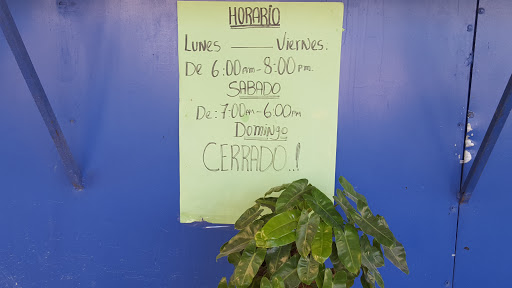 HORARIO
LUNES —— VIERNES.
DE 6:00AM-8:00PM.
SABADO
DE: 7:00AM-6:00PM
DOMINGO
CERRADO..!